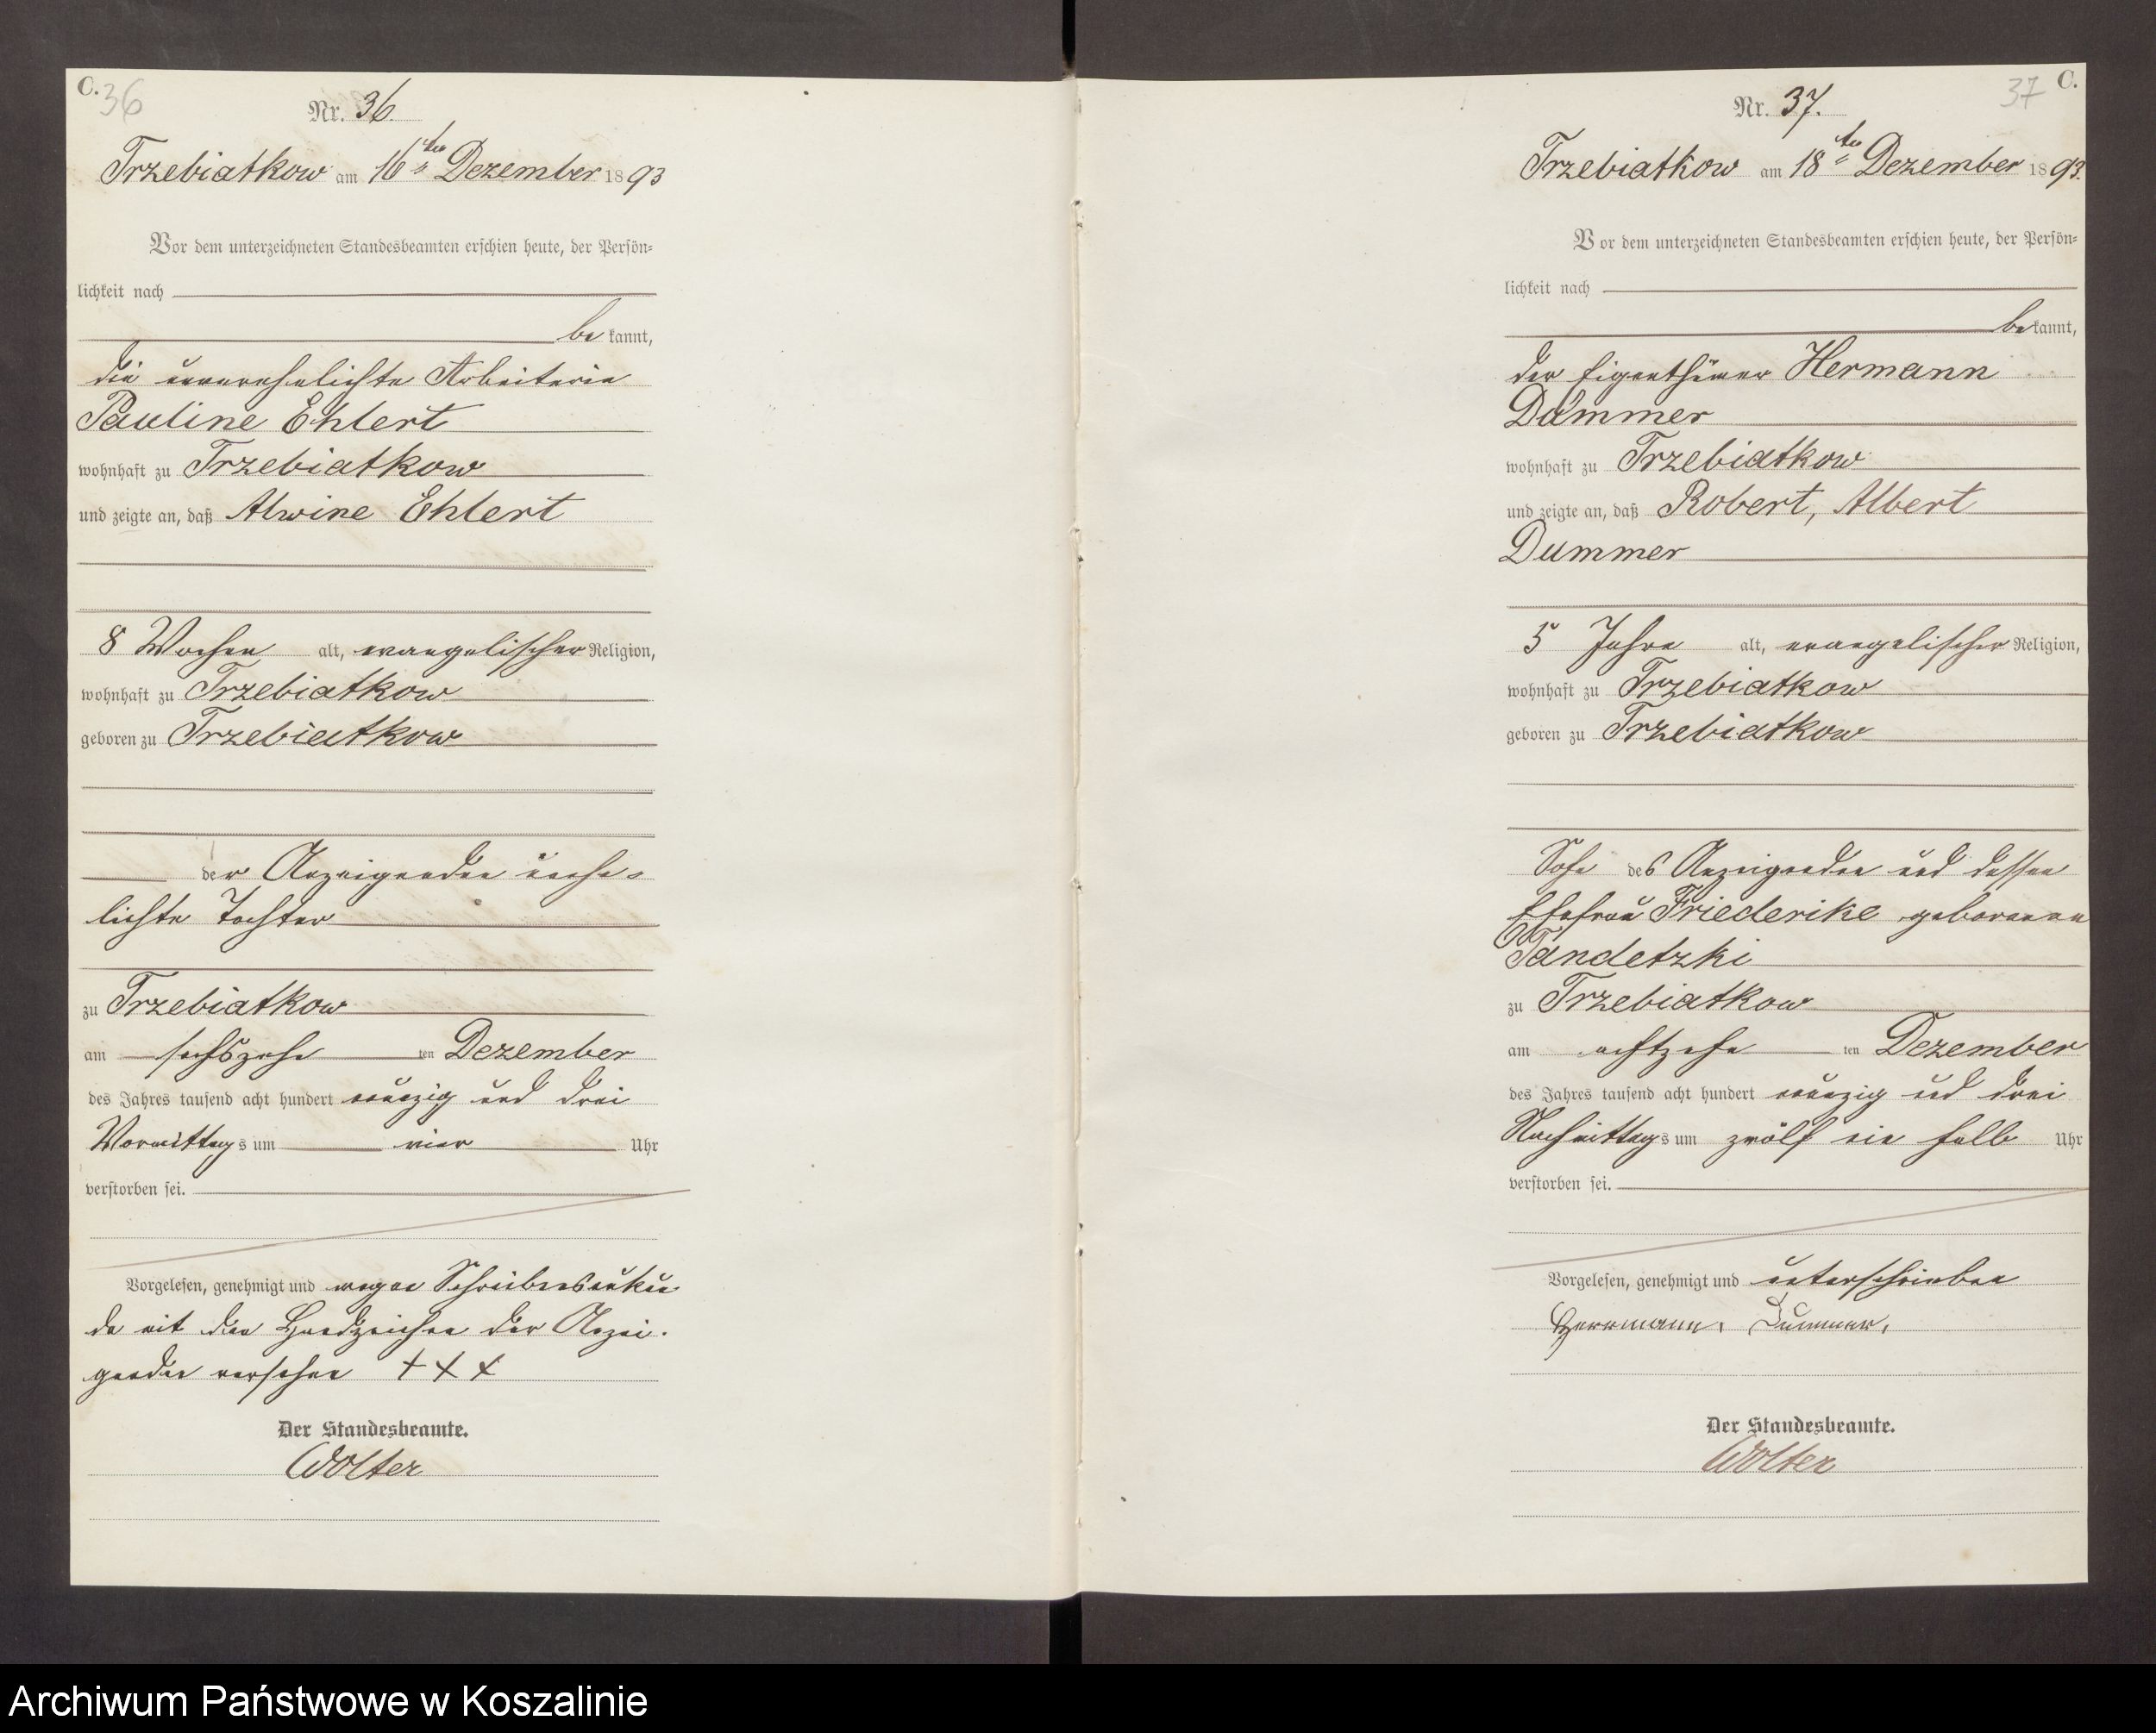 C.
36
Nr. 36.
Trzebiatkow am 16ten Dezember 1893
Vor dem unterzeichneten Standesbeamten erschien heute, der Persön-
lichkeit nach
be kannt,
die unverehelichte Arbeiterin
Pauline Ehlert
wohnhaft zu Trzebiatkow
und zeigte an, daß Alwine Ehlert
8 Wochen alt, evangelischer Religion,
wohnhaft zu Trzebiatkow
geboren zu Trzebiatkow
der Anzeigenden unehe-
lichte Tochter
zu Trzebiatkow
am sechszehn ten Dezember
des Jahres tausend acht hundert neunzig und drei
Vormittags um vier Uhr
verstorben sei.
Vorgelesen, genehmigt und wegen Schreibensunkun
de mit den Handzeichen der Anzei.
genden versehen + + +
Der Standesbeamte.
Wolter
37 C.
Nr. 37.
Trzebiatkow am 18ten Dezember 1893.
Vor dem unterzeichneten Standesbeamten erschien heute, der Persön-
lichkeit nach
bekannt,
der Eigenthümer Hermann
Dummer
wohnhaft zu Trzebiatkow
und zeigte an, daß Robert, Albert
Dummer
5 Jahre alt, evangelischer Religion,
wohnhaft zu Trzebiatkow
geboren zu Trzebiatkow
Sohn des Anzeigenden und dessen
Ehefrau Friederike geborenen
Tandetzki
zu Trzebiatkow
am achtzehn ten Dezember
des Jahres tausend acht hundert neunzig und drei
Nachmittags um zwölf ein halb Uhr
verstorben sei.
Vorgelesen, genehmigt und unterschrieben
Herrmann, Dummer,
Der Standesbeamte.
Wolter
Archiwum Państwowe w Koszalinie